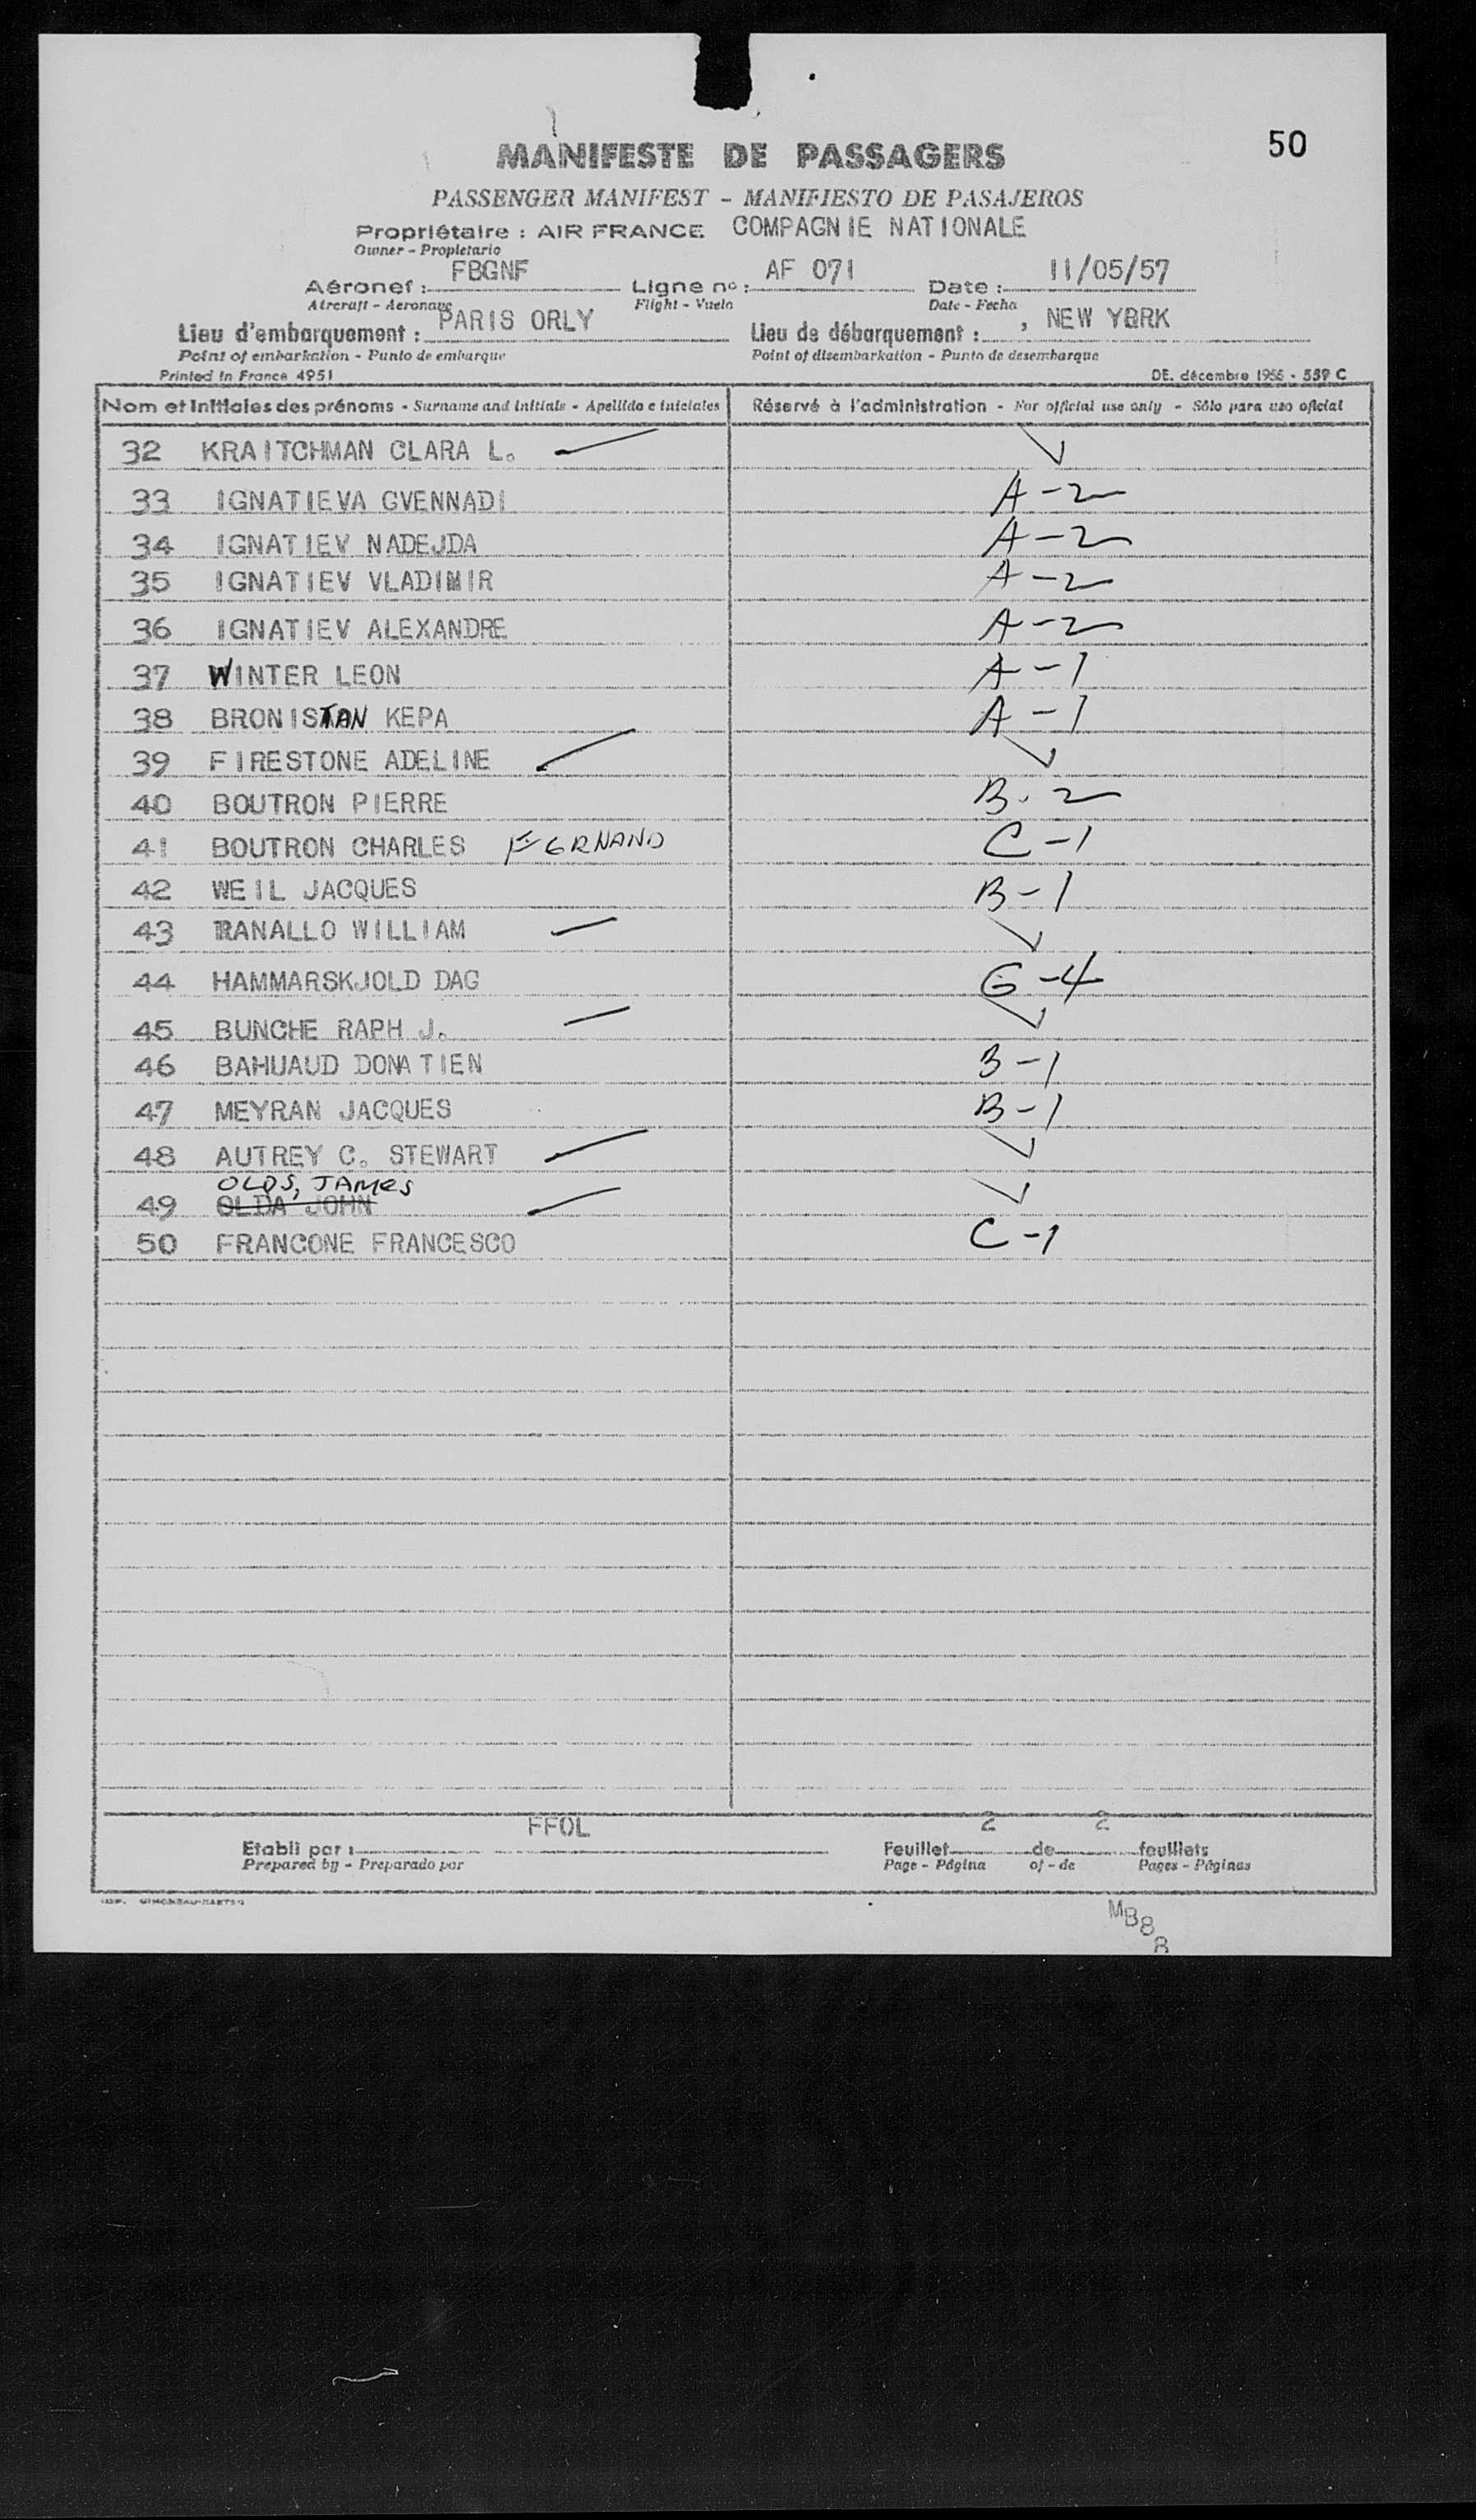 50
MANIFESTE DE PASSAGERS
PASSENGER MANIFEST - MANIFIESTO DE PASAJEROS
Propriétaire : AIR FRANCE COMPAGNIE NATIONALE
Owner - Propietario
Aéronef : FBGNF Ligne nº : AF 071 Date : 11/05/57
Aircraft - Aeronave Flight - Vuelo Date - Fecha
Lieu d'embarquement : PARIS ORLY Lieu de débarquement : , NEW YORK
Point of embarkation - Punto de embarque Point of disembarkation - Punto de desembarque
Printed in France 4951 DE. décembre 1956 - 559 C
Nom et initiales des prénoms - Surname and initials - Apellido e iniciales Réservé à l'administration - For official use only - Sólo para uso oficial
32 KRAITCHMAN CLARA L.
33 IGNATIEVA GVENNADI A-2
34 IGNATIEV NADEJDA A-2
35 IGNATIEV VLADIMIR A-2
36 IGNATIEV ALEXANDRE A-2
37 WINTER LEON A-1
38 BRONISTAN KEPA A-1
39 FIRESTONE ADELINE
40 BOUTRON PIERRE B-2
41 BOUTRON CHARLES FERNAND C-1
42 WEIL JACQUES B-1
43 RANALLO WILLIAM
44 HAMMARSKJOLD DAG G-4
45 BUNCHE RAPH J.
46 BAHUAUD DONATIEN B-1
47 MEYRAN JACQUES B-1
48 AUTREY C. STEWART
OLDS, JAMES
49 OLDA JOHN
50 FRANCONE FRANCESCO C-1
FFOL
Etabli par : Feuillet 2 de 2 feuillets
Prepared by - Preparado por Page - Página of - de Pages - Páginas
MB8